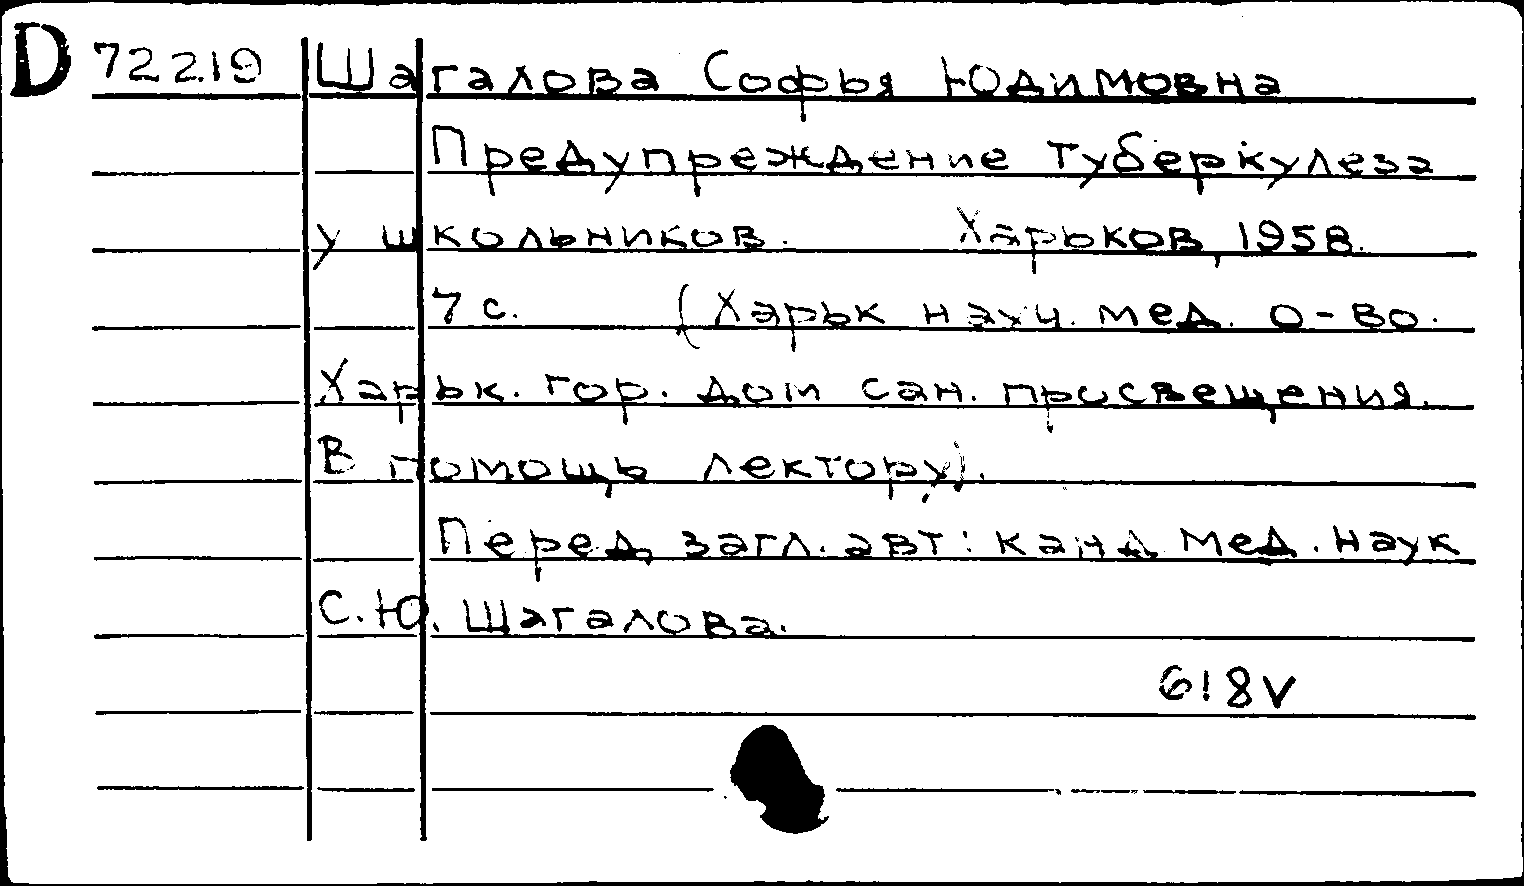 D 72219 Шагалова Софья Юдимовна
Предупреждение туберкулеза
у школьников. Харьков, 1958.
7 с. (Харьк науч. мед. о-во.
Харьк. гор. дом сан. просвещения.
В помощь лектору).
Перед загл. авт: канд мед. наук
С.Ю. Шагалова.
618V